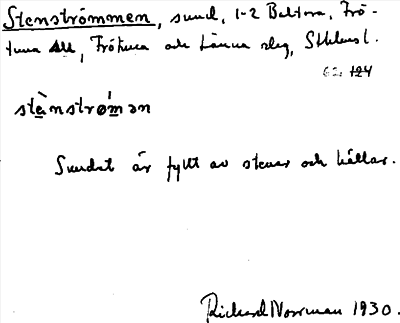 Stenströmmen, sund, 1-2 Baltora, Frö-
tuna , Frötuna och Länna skg, Sthlms l.
62 124
stènstrǿmən
Sundet är fyllt av stenar och hällar.
Richard Norrman 1930.